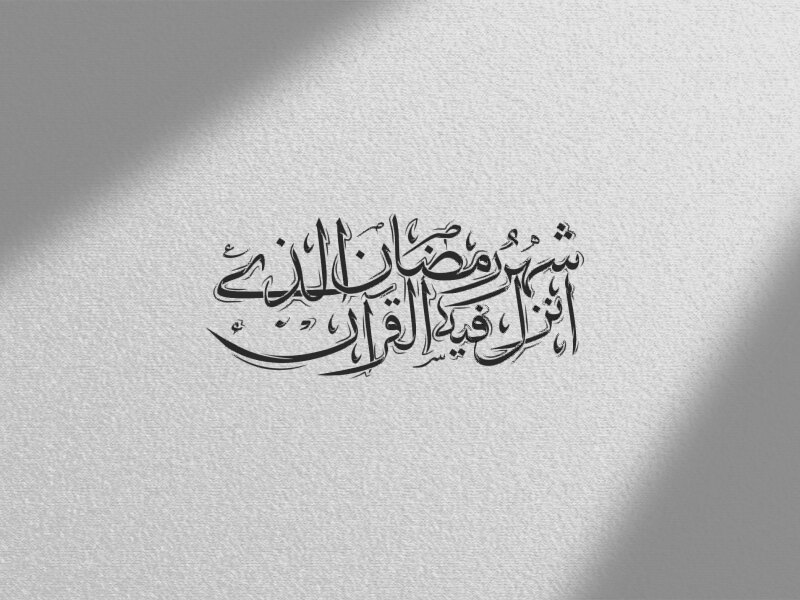 شهر رمضان الذي
انزل فيه القرآن